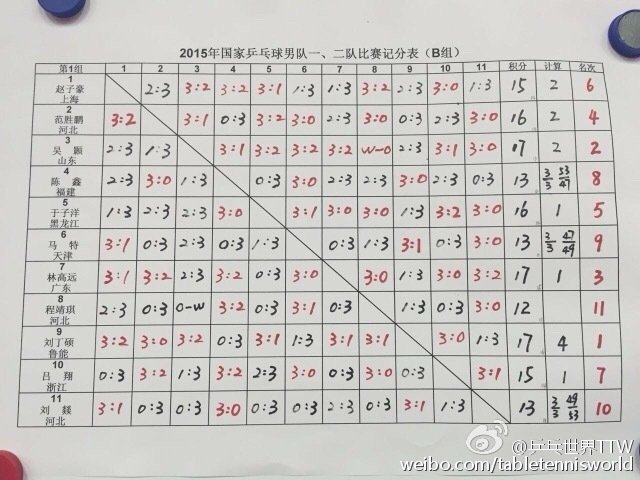 2015年国家乒乓球男队一、二队比赛记分表（B组）
第1组 1 2 3 4 5 6 7 8 9 10 11 积分 计算 名次
1 赵子豪 上海 2:3 3:2 3:2 3:1 1:3 1:3 3:2 2:3 3:0 1:3 15 2 6
2 范胜鹏 河北 3:2 3:1 0:3 3:2 3:0 2:3 3:0 0:3 2:3 3:0 16 2 4
3 吴颢 山东 2:3 1:3 3:1 3:2 3:2 3:2 W-0 2:3 3:1 3:0 17 2 2
4 陈鑫 福建 2:3 3:0 1:3 0:3 3:0 2:3 2:3 3:0 2:3 0:3 13 3/3 53/47 8
5 于子洋 黑龙江 1:3 2:3 2:3 3:0 3:1 3:0 3:0 1:3 3:2 3:0 16 1 5
6 马特 天津 3:1 0:3 2:3 0:3 1:3 0:3 1:3 3:1 0:3 3:0 13 3/3 47/49 9
7 林高远 广东 3:1 3:2 2:3 3:2 0:3 3:0 3:0 1:3 3:0 3:2 17 1 3
8 程靖琪 河北 2:3 0:3 0-W 3:2 0:3 3:1 0:3 1:3 0:3 3:0 12 11
9 刘丁硕 鲁能 3:2 3:0 3:2 0:3 3:1 1:3 3:1 3:1 3:0 1:3 17 4 1
10 吕翔 浙江 0:3 3:2 1:3 3:2 2:3 3:0 0:3 3:0 0:3 3:1 15 1 7
11 刘燚 河北 3:1 0:3 0:3 3:0 0:3 0:3 2:3 0:3 3:1 1:3 13 3/3 49/53 10
@乒乓世界TTW
weibo.com/tabletennisworld